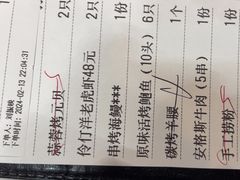 下单人：刘振映
下单时间：2024-02-13 22:04:31
蒜蓉烤元贝 2只
伶仃洋老虎虾48元 2只
串烤海鳗*** 1份
原味活烤鲍鱼（10头） 6只
碳烤羊腰 1个
安格斯牛肉（5串） 1份
手工捞粉 1份